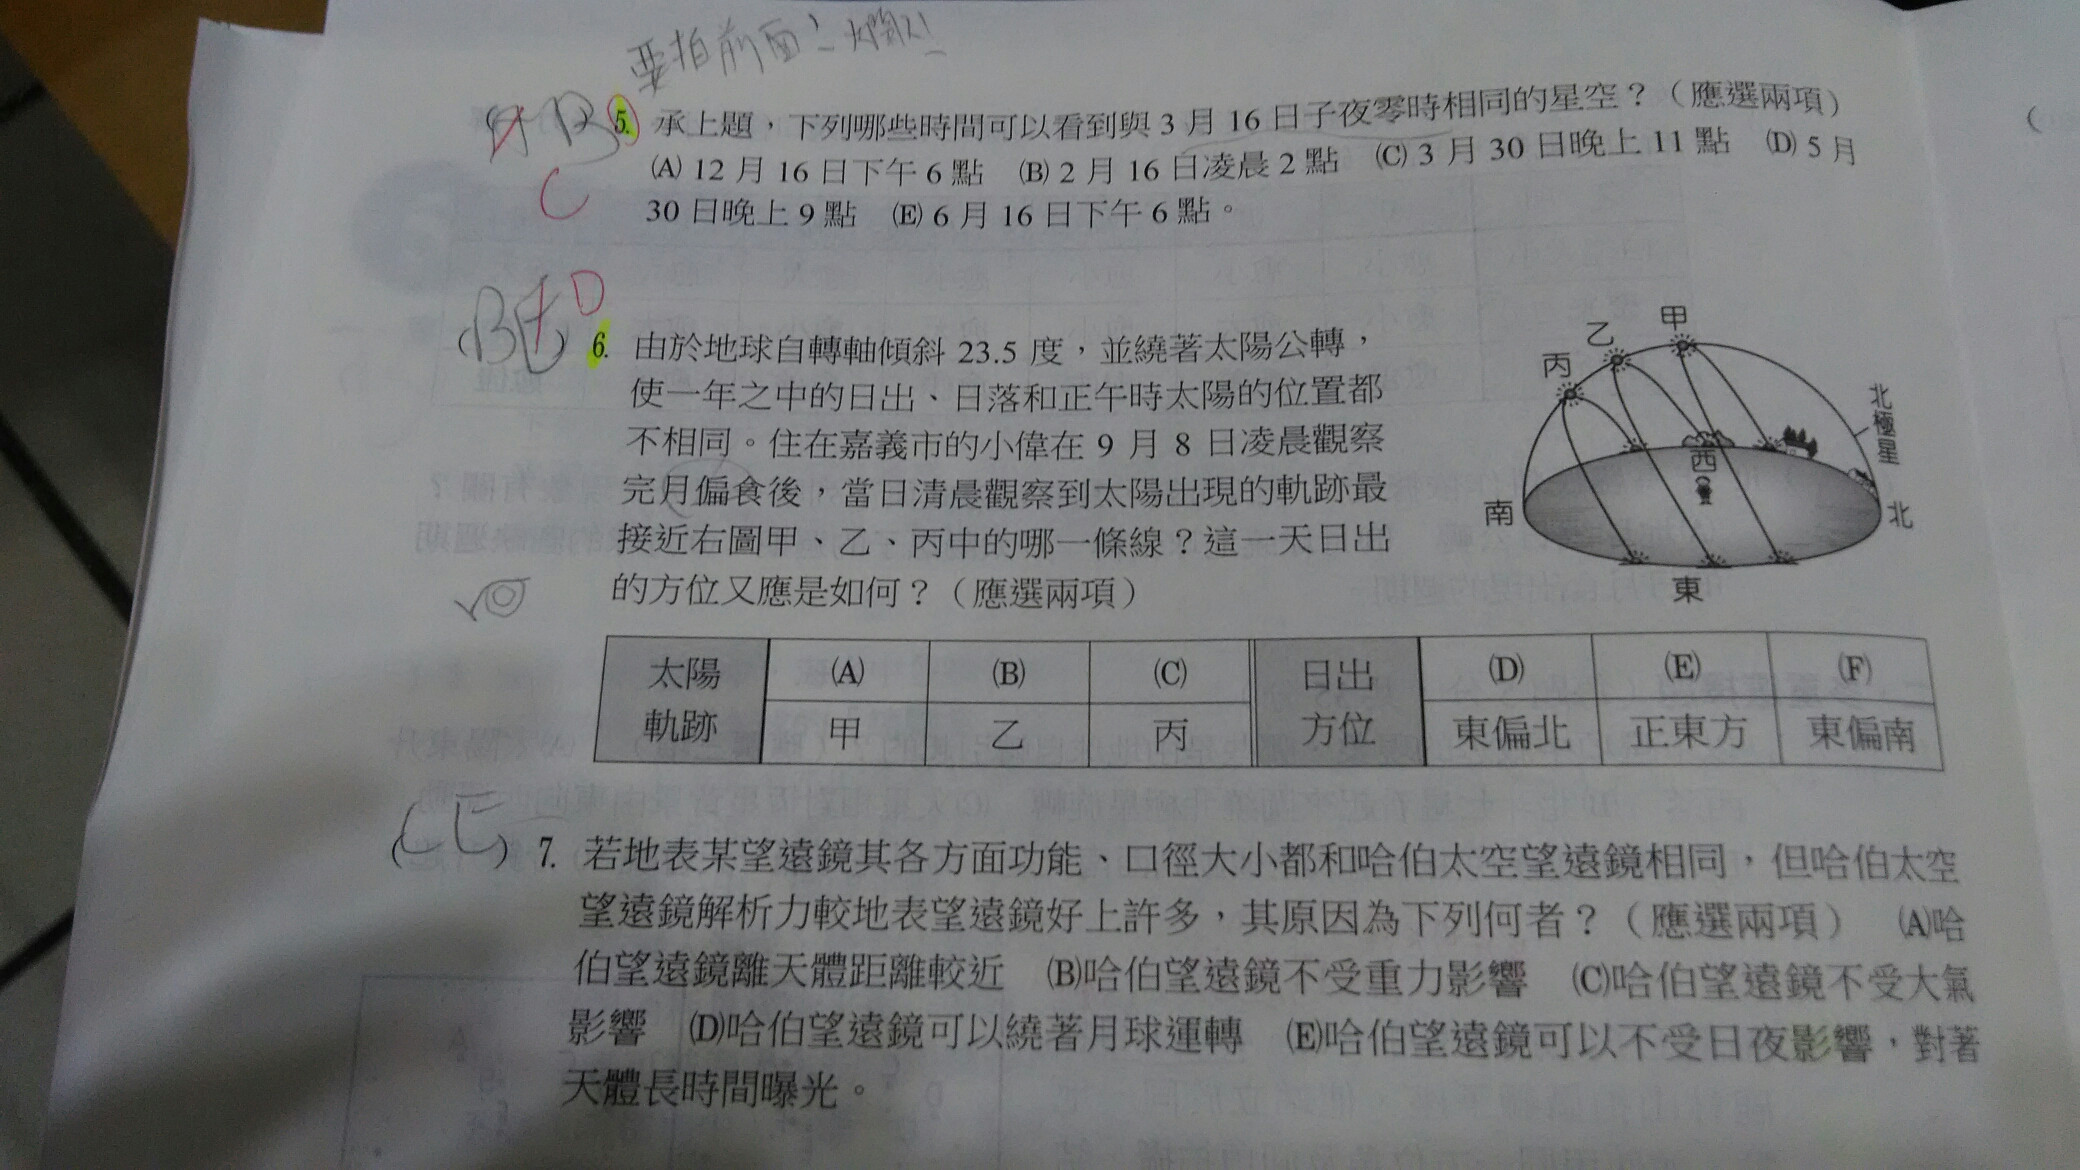 要拍前面ㄛ
AB
C
5. 承上題，下列哪些時間可以看到與 3 月 16 日子夜零時相同的星空？（應選兩項）
(A) 12 月 16 日下午 6 點　(B) 2 月 16 日凌晨 2 點　(C) 3 月 30 日晚上 11 點　(D) 5 月
30 日晚上 9 點　(E) 6 月 16 日下午 6 點。
(BE) D
6. 由於地球自轉軸傾斜 23.5 度，並繞著太陽公轉，
使一年之中的日出、日落和正午時太陽的位置都
不相同。住在嘉義市的小偉在 9 月 8 日凌晨觀察
完月偏食後，當日清晨觀察到太陽出現的軌跡最
接近右圖甲、乙、丙中的哪一條線？這一天日出
的方位又應是如何？（應選兩項）
甲
乙
丙
北極星
西
南
北
東
太陽軌跡 (A) (B) (C) 日出方位 (D) (E) (F)
甲 乙 丙 東偏北 正東方 東偏南
(CE) 7. 若地表某望遠鏡其各方面功能、口徑大小都和哈伯太空望遠鏡相同，但哈伯太空
望遠鏡解析力較地表望遠鏡好上許多，其原因為下列何者？（應選兩項）　(A)哈
伯望遠鏡離天體距離較近　(B)哈伯望遠鏡不受重力影響　(C)哈伯望遠鏡不受大氣
影響　(D)哈伯望遠鏡可以繞著月球運轉　(E)哈伯望遠鏡可以不受日夜影響，對著
天體長時間曝光。